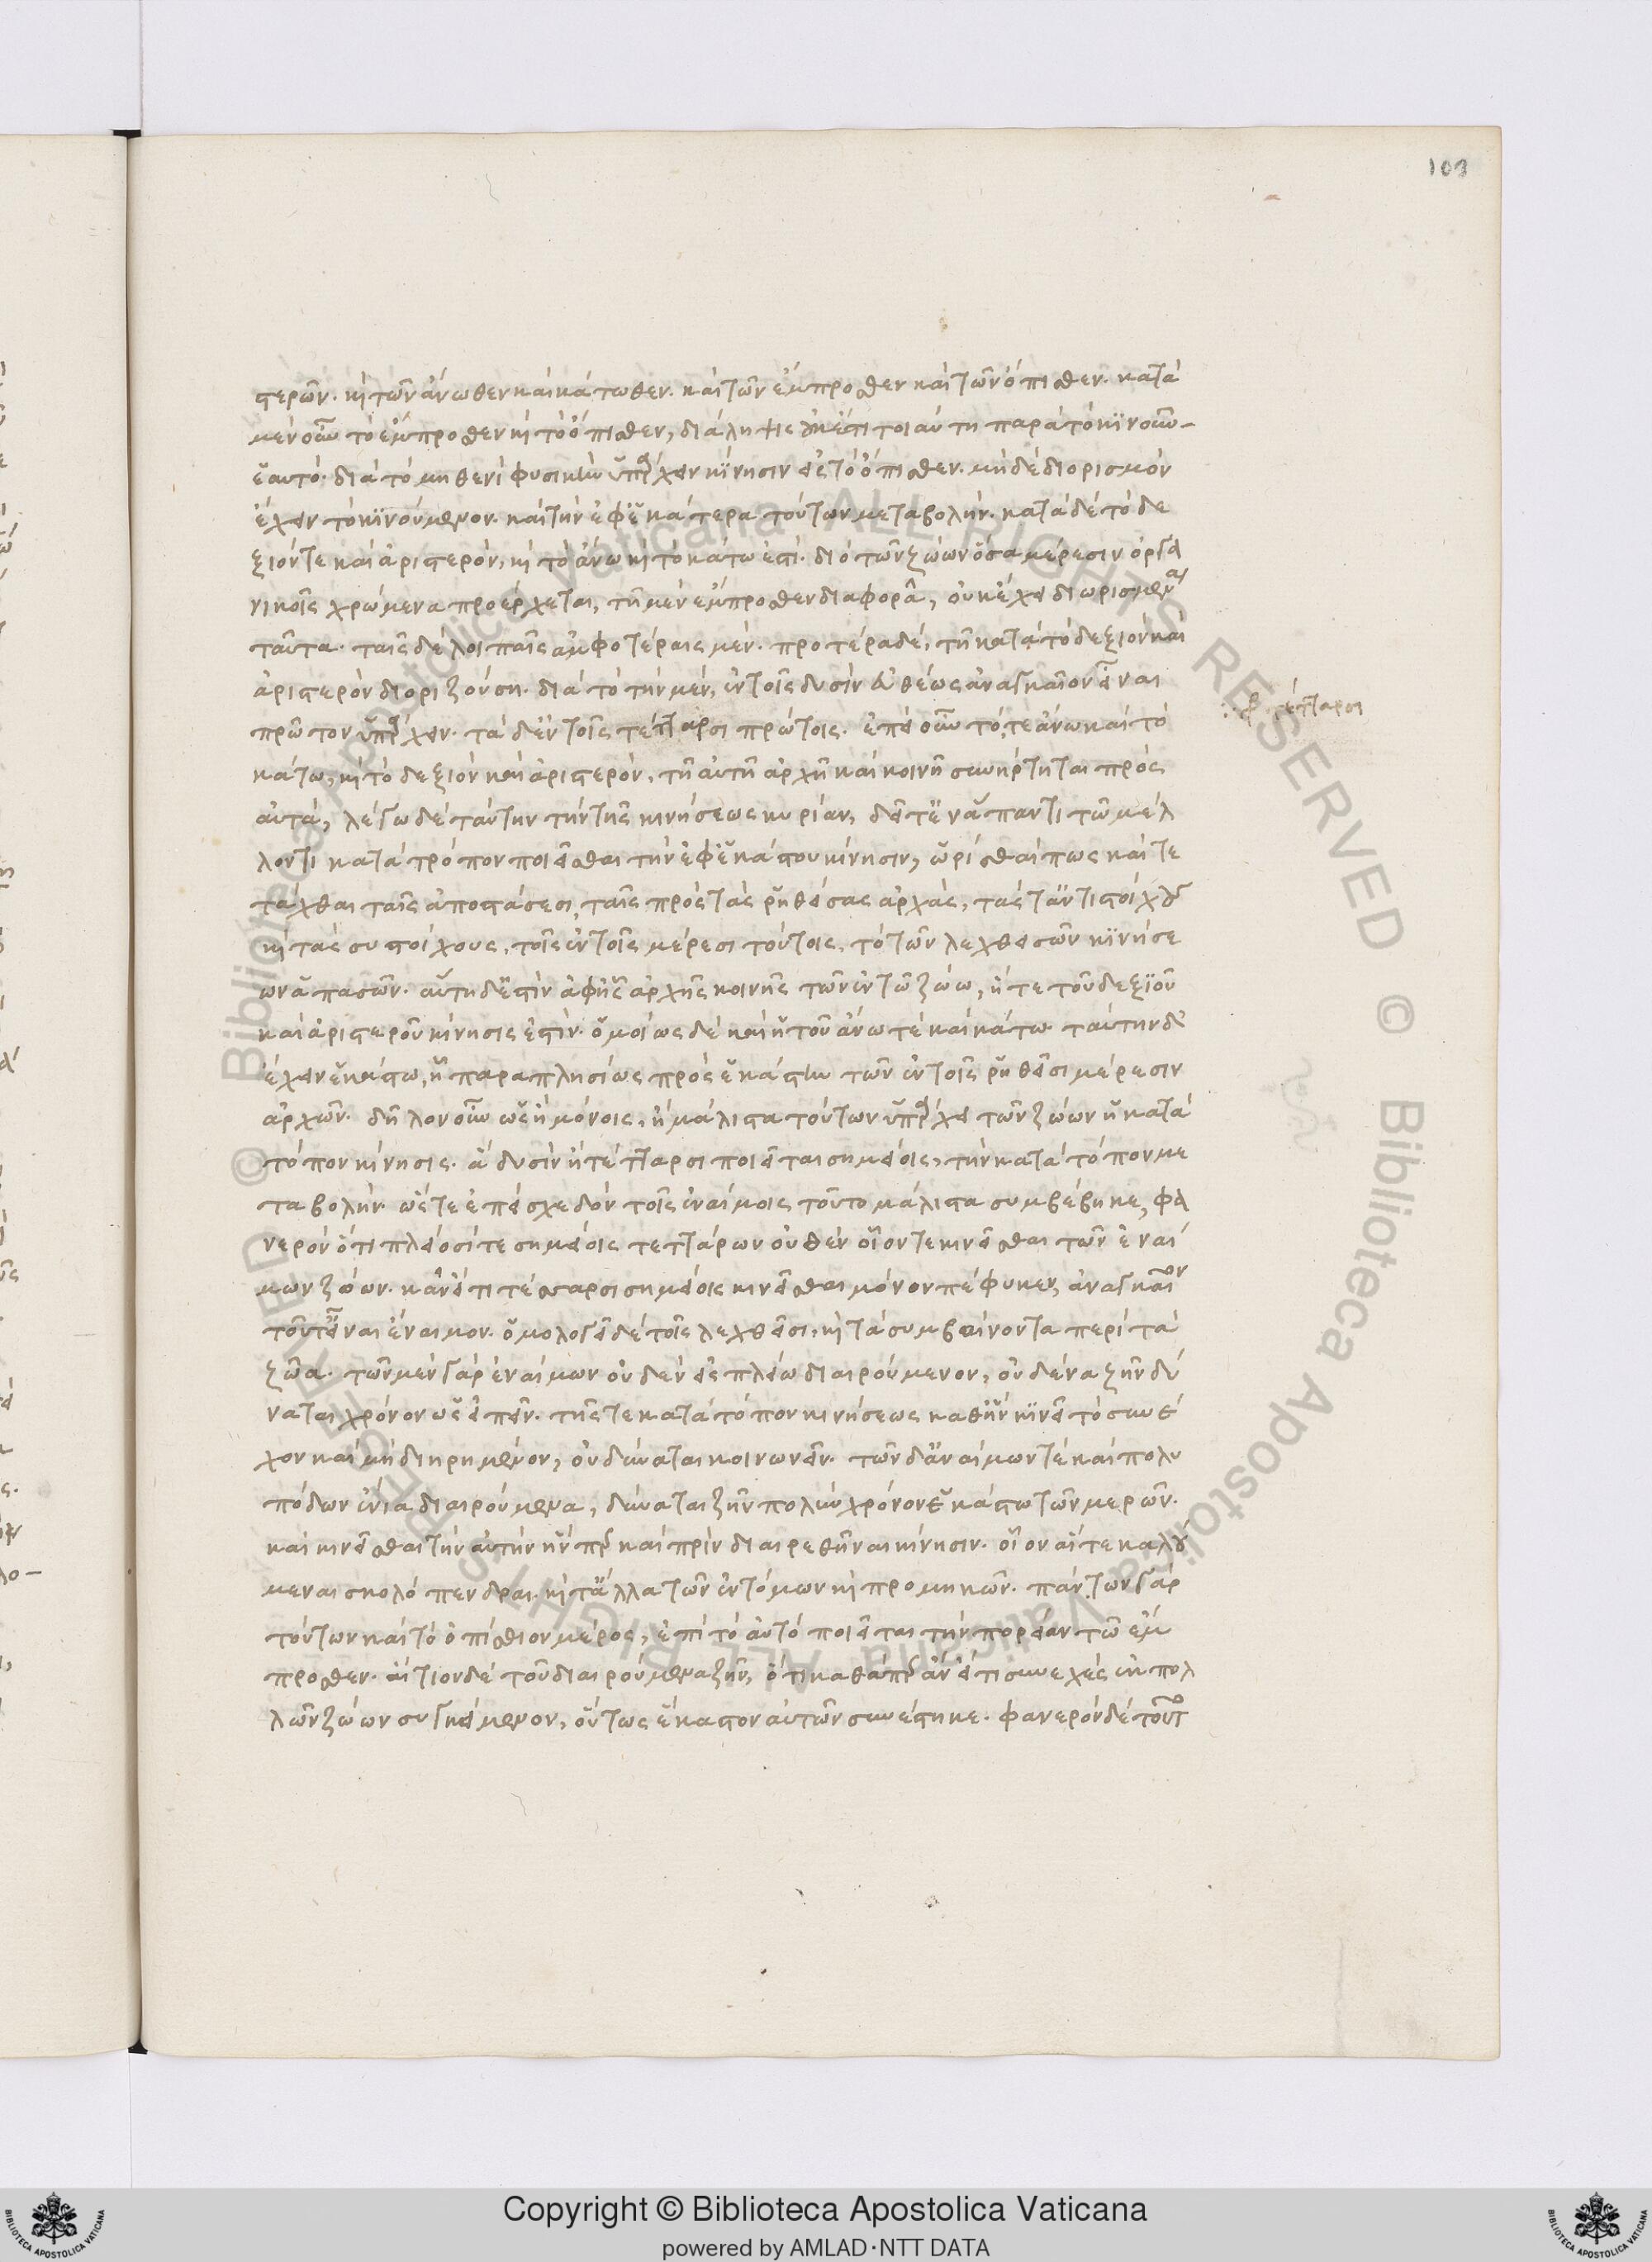 103
στερῶν. καὶ τῶν ἄνωθεν καὶ κάτωθεν. καὶ τῶν ἔμπροσθεν καὶ τῶν ὄπισθεν. κατὰ
μὲν οὖν τὸ ἔμπροσθεν καὶ τὸ ὄπισθεν, διάληψις οὐκ ἔστι τοιαύτη παρὰ τὸ κινοῦν
ἑαυτό. διὰ τὸ μηθενὶ φυσικὴν ὑπάρχειν κίνησιν εἰς τὸ ὄπισθεν. μηδὲ διορισμὸν
ἔχειν τὸ κινούμενον. καὶ τὴν ἐφ' ἑκάτερα τούτων μεταβολήν. κατὰ δὲ τὸ δε
ξιόν τε καὶ ἀριστερόν, καὶ τὸ ἄνω καὶ τὸ κάτω ἐστί. διὸ τῶν ζώων ὅσα μέρεσιν ὀργα
νικοῖς χρώμενα προέρχεται, τῇ μὲν ἔμπροσθεν διαφορᾷ, οὐκ ἔχει διωρισμένα
ταῦτα. ταῖς δὲ λοιπαῖς ἀμφοτέραις μέν. προτέρα δὲ, τῇ κατὰ τὸ δεξιὸν καὶ
ἀριστερὸν διοριζούσῃ. διὰ τὸ τὴν μὲν, ἐν τοῖς δυσὶν εὐθέως ἀναγκαῖον εἶναι
πρῶτον ὑπάρχειν. τὰ δ' ἐν τοῖς τέτταρσι πρώτοις. ἐπεὶ οὖν τό τε ἄνω καὶ τὸ
:· φ τέτταρσι
κάτω, καὶ τὸ δεξιὸν καὶ ἀριστερόν, τῇ αὐτῇ ἀρχῇ καὶ κοινῇ συνήρτηται πρὸς
αὐτά, λέγω δὲ ταύτην τὴν τῆς κινήσεως κυρίαν, δεῖ τ' ἐν ἅπαντι τῷ μέλ
λοντι κατὰ τρόπον ποιεῖσθαι τὴν ἀφ' ἑκάστου κίνησιν, ὡρίσθαι πως καὶ τε
τάχθαι ταῖς ἀποστάσεσι, ταῖς πρὸς τὰς ῥηθείσας ἀρχὰς, τάς τ' ἀντιστοίχους
καὶ τὰς συστοίχους, τοῖς ἐν τοῖς μέρεσι τούτοις, τὸ τῶν λεχθεισῶν κινήσε
ων ἁπασῶν. αὕτη δ' ἐστὶν ἀφ' ἧς ἀρχῆς κοινῆς τῶν ἐν τῷ ζώῳ, ἥ τε τοῦ δεξιοῦ
καὶ ἀριστεροῦ κίνησις ἐστίν. ὁμοίως δὲ καὶ ἡ τοῦ ἄνω τε καὶ κάτω. ταύτην δ'
ἔχειν ἑκάστῳ, ᾗ παραπλησίως πρὸς ἑκάστην τῶν ἐν τοῖς ῥηθεῖσι μέρεσιν
ἀρχῶν. δῆλον οὖν ὡς ἢ μόνοις, ἢ μάλιστα τούτων ὑπάρχει τῶν ζώων ἡ κατὰ
τόπον κίνησις. ἃ δυσὶν ἢ τέτταρσι ποιεῖται σημείοις, τὴν κατὰ τόπον με
ταβολήν. ὥστε ἐπεὶ σχεδὸν τοῖς ἐναίμοις τοῦτο μάλιστα συμβέβηκε, φα
νερὸν ὅτι πλείοσί τε σημείοις τεττάρων οὐθὲν οἷόν τε κινεῖσθαι τῶν ἐναί
μων ζώων. κἂν εἴ τι τέτταρσι σημείοις κινεῖσθαι μόνον πέφυκεν, ἀναγκαῖον
τοῦτ' εἶναι ἔναιμον. ὁμολογεῖ δὲ τοῖς λεχθεῖσι, καὶ τὰ συμβαίνοντα περὶ τὰ
ζῷα. τῶν μὲν γὰρ ἐναίμων οὐδὲν εἰς πλείω διαιρούμενον, οὐδένα ζῆν δύ
ναται χρόνον ὡς εἰπεῖν. τῆς τε κατὰ τόπον κινήσεως καθ' ἣν κινεῖτο συνε
χον καὶ μὴ διῃρημένον, οὐ δύναται κοινωνεῖν. τῶν δ' ἀναίμων τε καὶ πολυ
πόδων ἔνια διαιρούμενα, δύναται ζῆν πολὺν χρόνον ἑκάστῳ τῶν μερῶν.
καὶ κινεῖσθαι τὴν αὐτὴν ἥνπερ καὶ πρὶν διαιρεθῆναι κίνησιν. οἷον αἵ τε καλού
μεναι σκολόπενδραι. καὶ τἄλλα τῶν ἐντόμων καὶ προμηκῶν. πάντων γὰρ
τούτων καὶ τὸ ὀπίσθιον μέρος, ἐπὶ τὸ αὐτὸ ποιεῖται τὴν πορείαν τῷ ἔμ
προσθεν. αἴτιον δὲ τοῦ διαιρούμενα ζῆν, ὅτι καθάπερ ἂν εἴ τι συνεχὲς ἐκ πολ
λῶν ζώων συγκείμενον, οὕτως ἕκαστον αὐτῶν συνέστηκε. φανερὸν δὲ τοῦτο
Copyright © Biblioteca Apostolica Vaticana
powered by AMLAD·NTT DATA